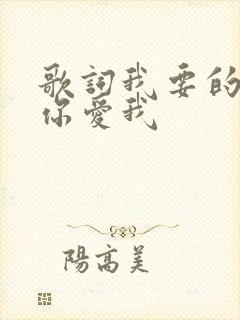 歌詞我要的
你愛我
陽高美